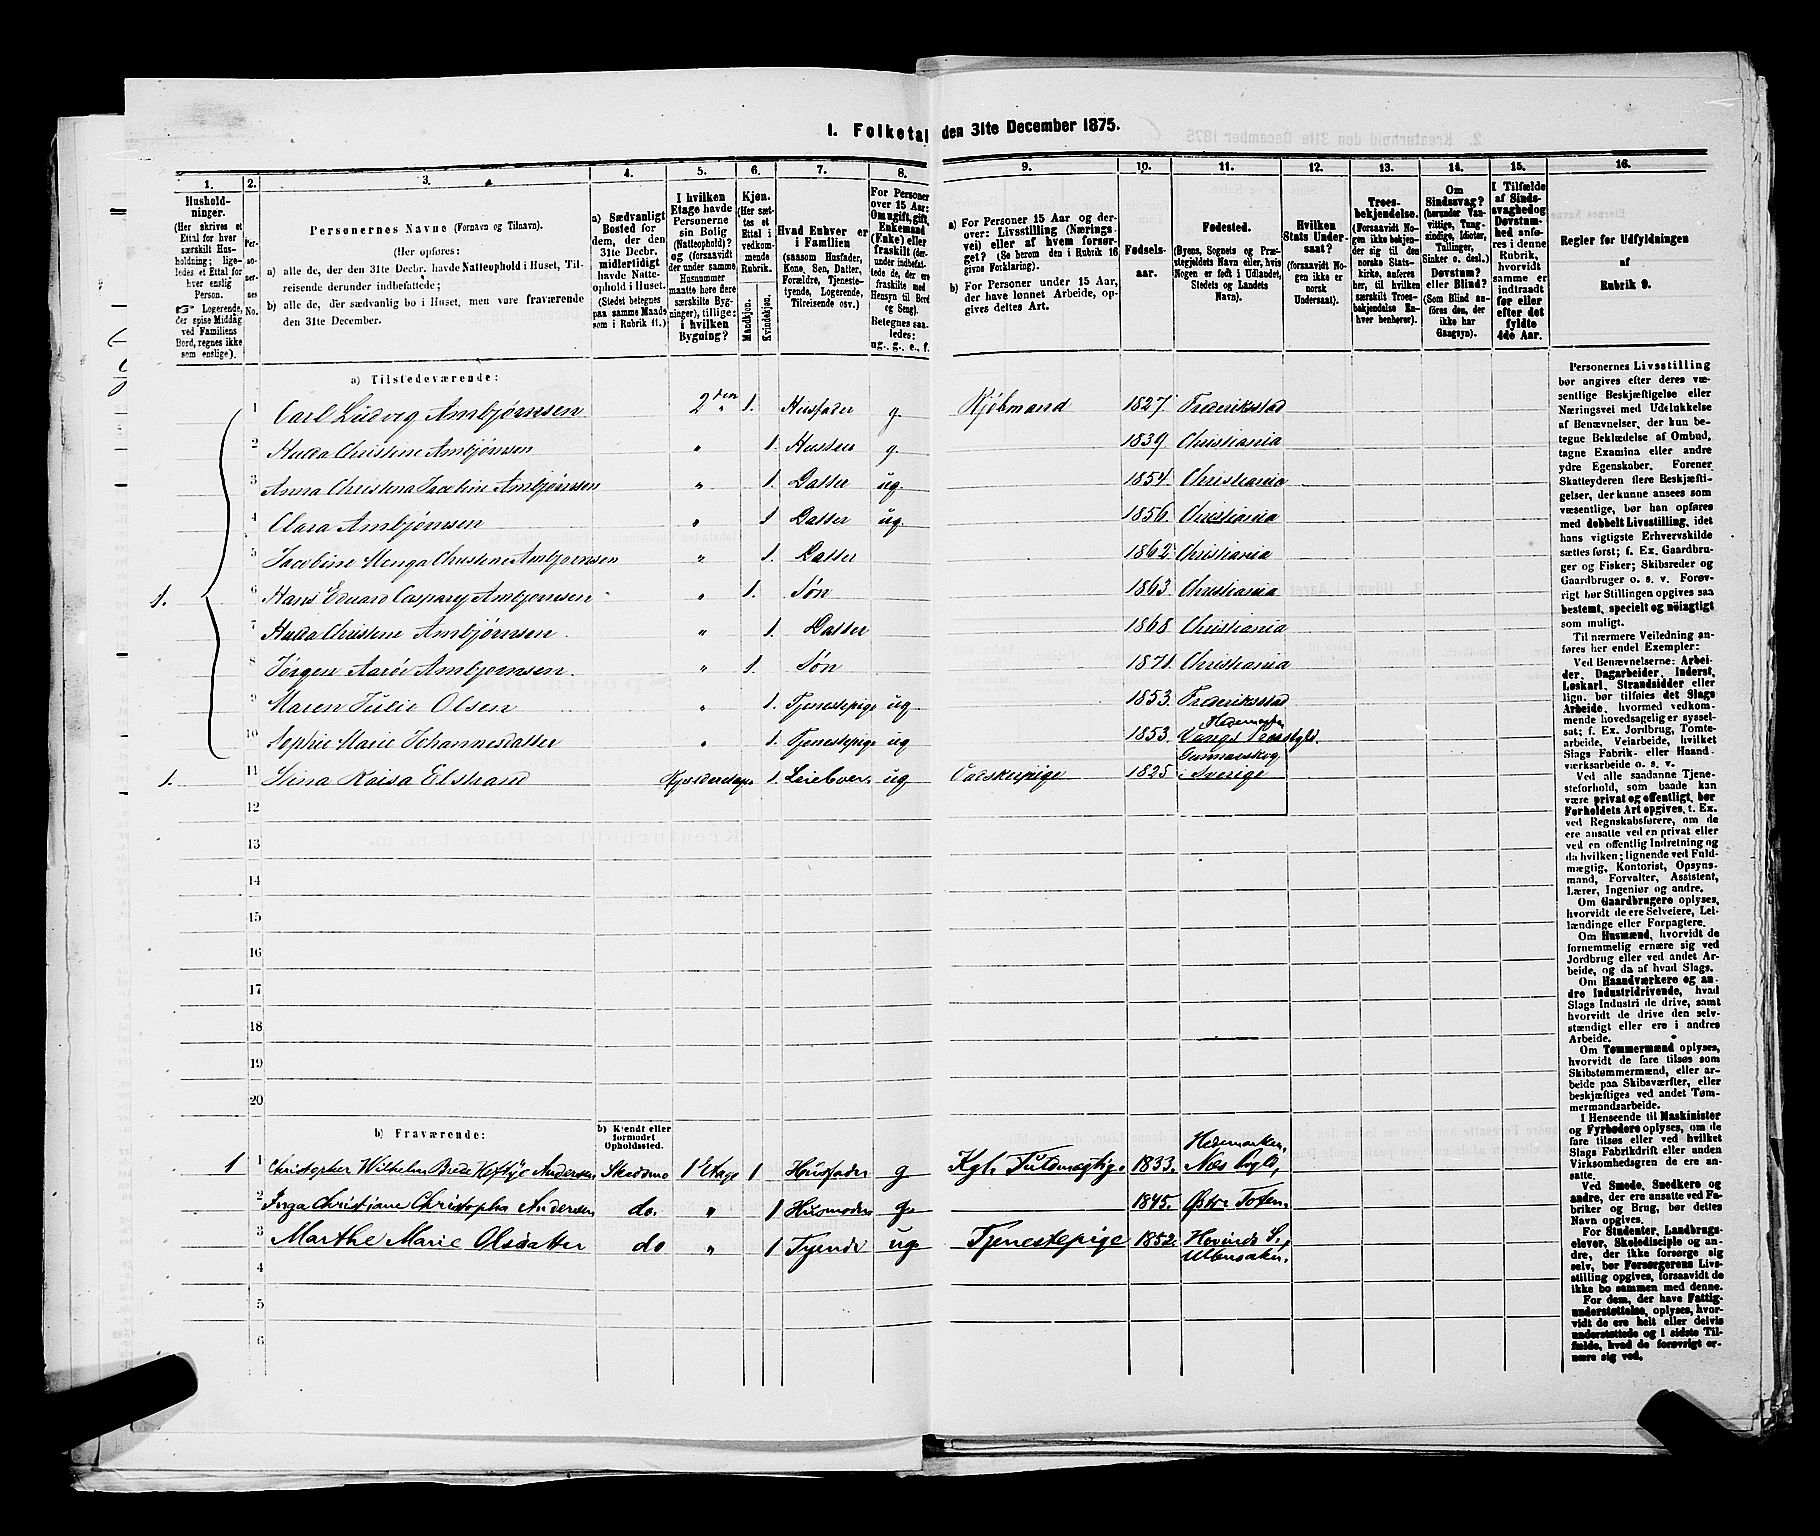 1. Folketal den 31te December 1875.
1.
Hushold-
ninger.
(Her skrives et
Ettal for hver
særskilt Hus-
holdning; lige-
ledes et Ettal for
hver enslig
Person.
☞ Logerende,
der spise Middag
ved Familiens
Bord, regnes ikke
som enslige).
2.
Per-
so-
ner-
nes
No.
3.
Personernes Navne (Fornavn og Tilnavn).
(Her opføres:
a) alle de, der den 31te Decbr. havde Natteophold i Huset, Til-
reisende derunder indbefattede;
b) alle de, der sædvanlig bo i Huset, men vare fraværende
den 31te December.
4.
a) Sædvanligt
Bosted for
dem, der den
31te Decbr.
midlertidigt
havde Natte-
ophold i Huset.
(Stedet betegnes
paa samme Maade
som i Rubrik 11.)
5.
I hvilken
Etage havde
Personerne
sin Bolig
(Natteophold)?
og (forsaavidt
der under samme
Husnummer
maatte høre flere
særskilte Byg-
ninger), tillige:
i hvilken
Bygning?
6.
Kjøn.
(Her sæt-
tes et
Ettal i
vedkom-
mende
Rubrik.
Mandkjøn.
Kvindekjøn.
7.
Hvad Enhver er
i Familien
(saasom Husfader,
Kone, Søn, Datter,
Forældre, Tjeneste-
tyende, Logerende,
Tilreisende osv.)
8.
For Personer
over 15 Aar:
Om ugift, gift,
Enkemand
(Enke) eller
fraskilt (der-
under indbefat-
tede de, der ere
fraskilte med
Hensyn til Bord
og Seng).
Betegnes saa-
ledes:
ug., g., e., f.
9.
a) For Personer 15 Aar og der-
over: Livsstilling (Nærings-
vei) eller af hvem forsør-
get? (Se herom den i Rubrik 16
givne Forklaring).
b) For Personer under 15 Aar,
der have lønnet Arbeide, op-
gives dettes Art.
10.
Fødsels-
aar.
11.
Fødested.
(Byens, Sognets og Præ-
stegjeldets Navn eller, hvis
Nogen er født i Udlandet,
Stedets og Landets
Navn).
12.
Hvilken
Stats Under-
saat?
(forsaavidt No-
gen ikke er
norsk
Undersaat).
13.
Troes-
bekjendelse.
(Forsaavidt No-
gen ikke bekjen-
der sig til den
norske Stats-
kirke, anføres
her, til hvilken
særskilt Troes-
bekjendelse En-
hver henhører).
14.
Om
Sindssvag?
(herunder Van-
vittige, Tung-
sindige, Idioter,
Tullinger,
Sinker o. desl.)
Døvstum?
eller Blind?
(Som Blind an-
føres den, der
ikke har
Gangsyn).
15.
I Tilfælde
af Sinds-
svaghed og
Døvstum-
hed anfø-
res i denne
Rubrik,
hvorvidt
samme er
indtraadt
før eller
efter det
fyldte
4de Aar.
16.
Regler for Udfyldningen
af
Rubrik 9.
a) Tilstedeværende:
1 Carl Ludvig Ambjørnsen 2den " 1. Husfader g. Kjøbmand 1827. Frederiksstad
2 Hulda Christine Ambjørnsen " 1. Hustru g. 1839 Christiania
3 Anna Christina Jacobine Ambjørnsen " 1. Datter ug. 1854. Christiania
4 Clara Ambjørnsen " 1 Datter ug. 1856. Christiania
5 Jacobine Menga Christine Ambjørnsen " 1. Datter 1862. Christiania
1. 6 Hans Eduard Caspary Ambjørnsen " 1. Søn 1863. Christiania
7 Hulda Christine Ambjørnsen " 1. Datter 1868. Christiania
8 Jørgen Aarøe Ambjørnsen " 1. Søn 1871. Christiania
9 Maren Julie Olsen " 1. Tjenestepige ug 1853. Frederiksstad
10 Sophie Marie Johannesdatter " 1. Tjenestepige ug 1853. Hedemarken
1. 11 Stina Kaisa Elstrand 1. ug 1825 Gunnarskog
i Sverige
12
13
14
15
16
17
18
19
20
b) Fraværende:
b) Kjendt eller
formodet
Opholdssted.
1 1 Christopher Wilhelm Brede Heftÿe Andersen, 1 Etage 1 Husfader g Kgl. Fuldmægtig. 1833. Hedemarken,
Næs Pgld,
2 Inga Christiane Christopha Andersen do. " 1 Husmoder g. 1845. Østre Toten.
3 Marthe Marie Olsdatter do " 1 Tyende ug. Tjenestepige 1852. Hovinds S.,
Ullensaker.
4
5
6
Personernes Livsstilling
bør angives efter deres væ-
sentlige Beskjæftigelse eller
Næringsvei med Udelukkelse
af Benævnelser, der kun be-
tegne Beklædelse af Ombud,
tagne Examina eller andre
ydre Egenskaber. Forener
Skatteyderen flere Beskjæfti-
gelser, der kunne ansees som
væsentlige, bør han opføres
med dobbelt Livsstilling, idet
hans vigtigste Erhvervskilde
sættes først; f. Ex. Gaardbru-
ger og Fisker; Skibsreder og
Gaardbruger o. s. v. Forøv-
rigt bør Stillingen opgives saa
bestemt, specielt og nøiagtigt
som muligt.
Til nærmere Veiledning an-
føres her endel Exempler:
Ved Benævnelserne: Arbei-
der, Dagarbeider, Inderst,
Løskarl, Strandsidder eller
lign. bør tilføies det Slags
Arbeide, hvormed vedkom-
mende hovedsagelig er syssel-
sat; f. Ex. Jordbrug, Tomte-
arbeide, Veiarbeide, hvilket
Slags Fabrik- eller Haand-
værksarbeide o. s. v.
Ved alle saadanne Tjene-
steforhold, som baade kan
være privat og offentligt, bør
Forholdets Art opgives, t. Ex.
ved Regnskabsførere, om de
ere ansatte ved en privat eller
ved en offentlig Indretning og
da hvilken; lignende ved Fuld-
mægtig, Kontorist, Opsyns-
mand, Forvalter, Assistent,
Lærer, Ingeniør og andre.
Om Gaardbrugere oplyses,
hvorvidt de ere Selveiere, Lei-
lændinge eller Forpagtere.
Om Husmænd, hvorvidt de
fornemmelig ernære sig ved
Jordbrug eller ved andet Ar-
beide, og da af hvad Slags.
Om Haandværkere og an-
dre Industridrivende, hvad
Slags Industri de drive, samt
hvorvidt de drive den selv-
stændigt eller ere i andres
Arbeide.
Om Tømmermænd oplyses,
hvorvidt de fare tilsøs som
Skibstømmermænd, eller ar-
beide paa Skibsværfter, eller
beskjæftiges ved andet Tøm-
mermandsarbeide.
I Henseende til Maskinister
og Fyrbødere oplyses, om de
fare tilsøs eller ved hvilket
Slags Fabrikdrift eller anden
Virksomhedsgren de ere an-
satte.
Ved Smede, Snedkere og
andre, der ere ansatte ved Fa-
briker og Brug, bør dettes
Navn opgives.
For Studenter, Landbrugs-
elever, Skoledisciple og an-
dre, der ikke forsørge sig
selv, bør Forsørgerens Livs-
stilling opgives, forsaavidt de
ikke bo sammen med denne.
For dem, der have Fattig-
understøttelse, oplyses, hvor-
vidt de ere helt eller delvis
understøttede og i sidste Til-
fælde, hvad de forøvrigt er-
nære sig ved.